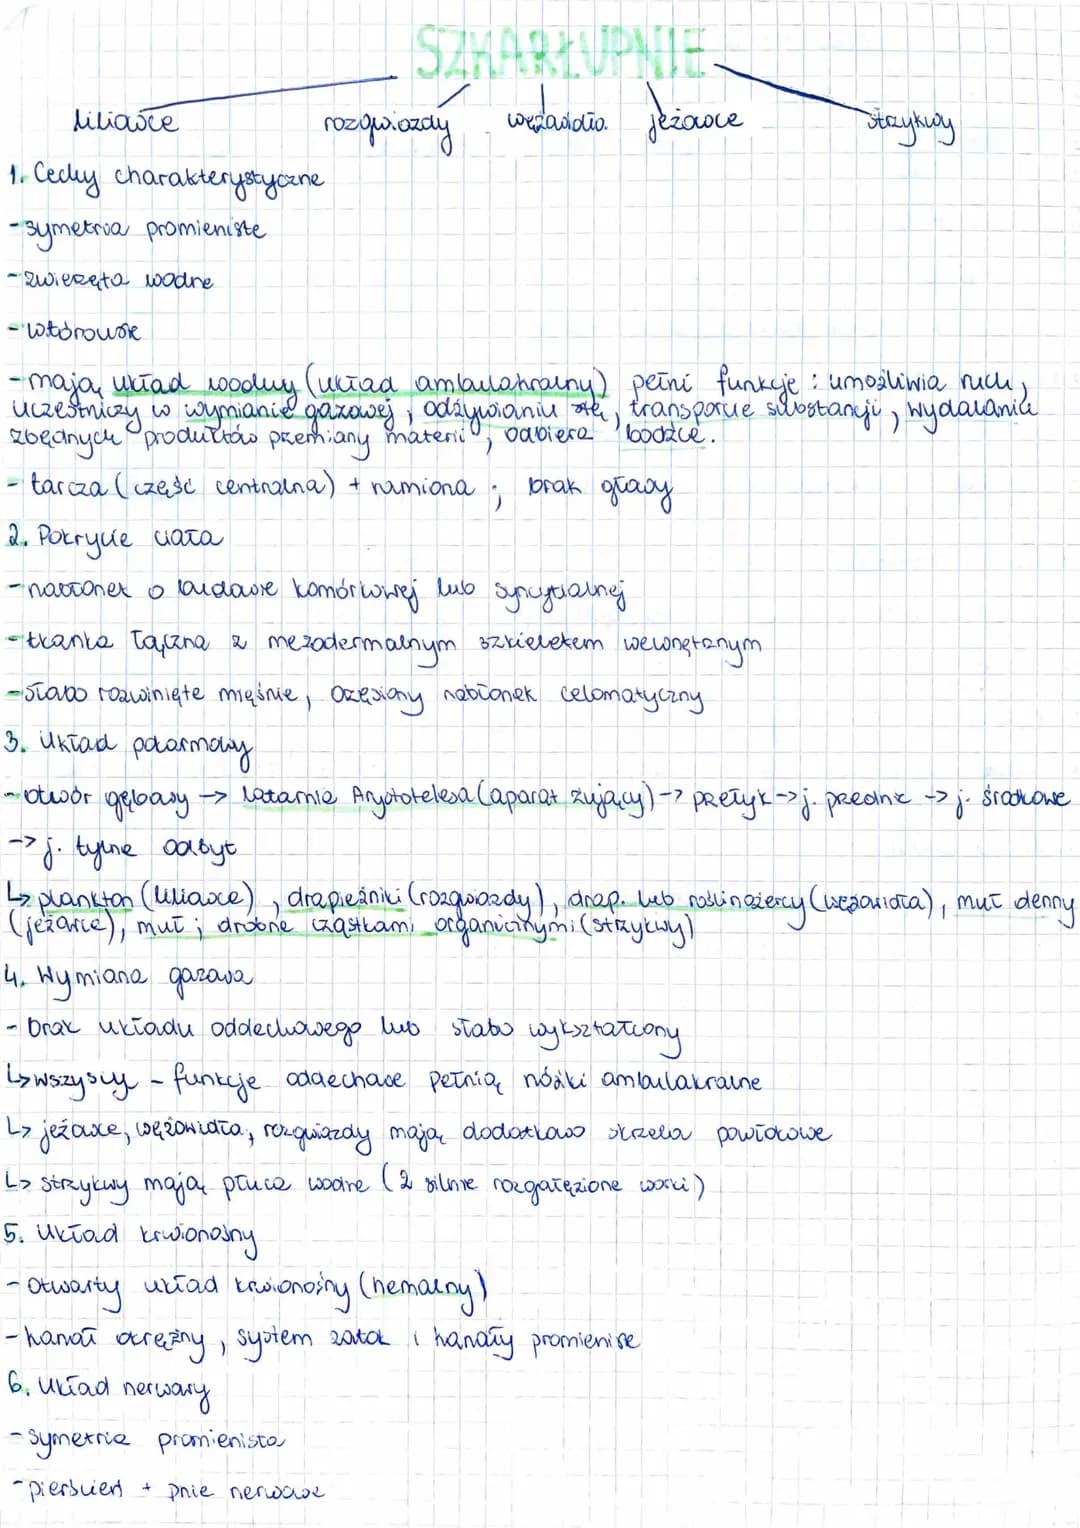 SZKARŁUPNIE
liliowce rozgwiazdy wężowidła. jeżowce strzykwy
1. Cechy charakterystyczne
- symetria promieniste
- zwierzęta wodne
- wtórouste
- mają układ wodny (układ ambulakralny) pełni funkcje : umożliwia ruch,
uczestniczy w wymianie gazowej, odżywianiu się, transporcie substancji, wydalania
zbędnych produktów przemiany materii, odbiera bodźce.
- tarcza (część centralna) + ramiona ; brak głowy
2. Pokrycie ciała
- nabłonek o budowie komórkowej lub syncytialnej
- tkanka łączna z mezodermalnym szkieletem wewnętrznym
- słabo rozwinięte mięśnie, orzęsiony nabłonek celomatyczny
3. Układ pokarmowy
- otwór gębowy -> latarnia Arystotelesa (aparat żujący) -> przełyk -> j. przednie -> j. środkowe
-> j. tylne odbyt
↳ plankton (liliowce), drapieżniki (rozgwiazdy), drap. lub roślinożercy (wężowidła), muł denny
(jeżowce), muł ; drobne cząstkami organicznymi (strzykwy)
4. Wymiana gazowa
- brak układu oddechowego lub słabo wykształcony
↳ wszyscy - funkcje oddechowe pełnią nóżki ambulakralne
↳ jeżowce, wężowidła, rozgwiazdy mają dodatkowo skrzela powłokowe
↳ strzykwy mają płuca wodne (2 silnie rozgałęzione worki)
5. Układ krwionośny
- otwarty układ krwionośny (hemalny)
- kanał okrężny, system zatok i kanały promieniste
6. Układ nerwowy
- symetria promienista
- pierścień + pnie nerwowe